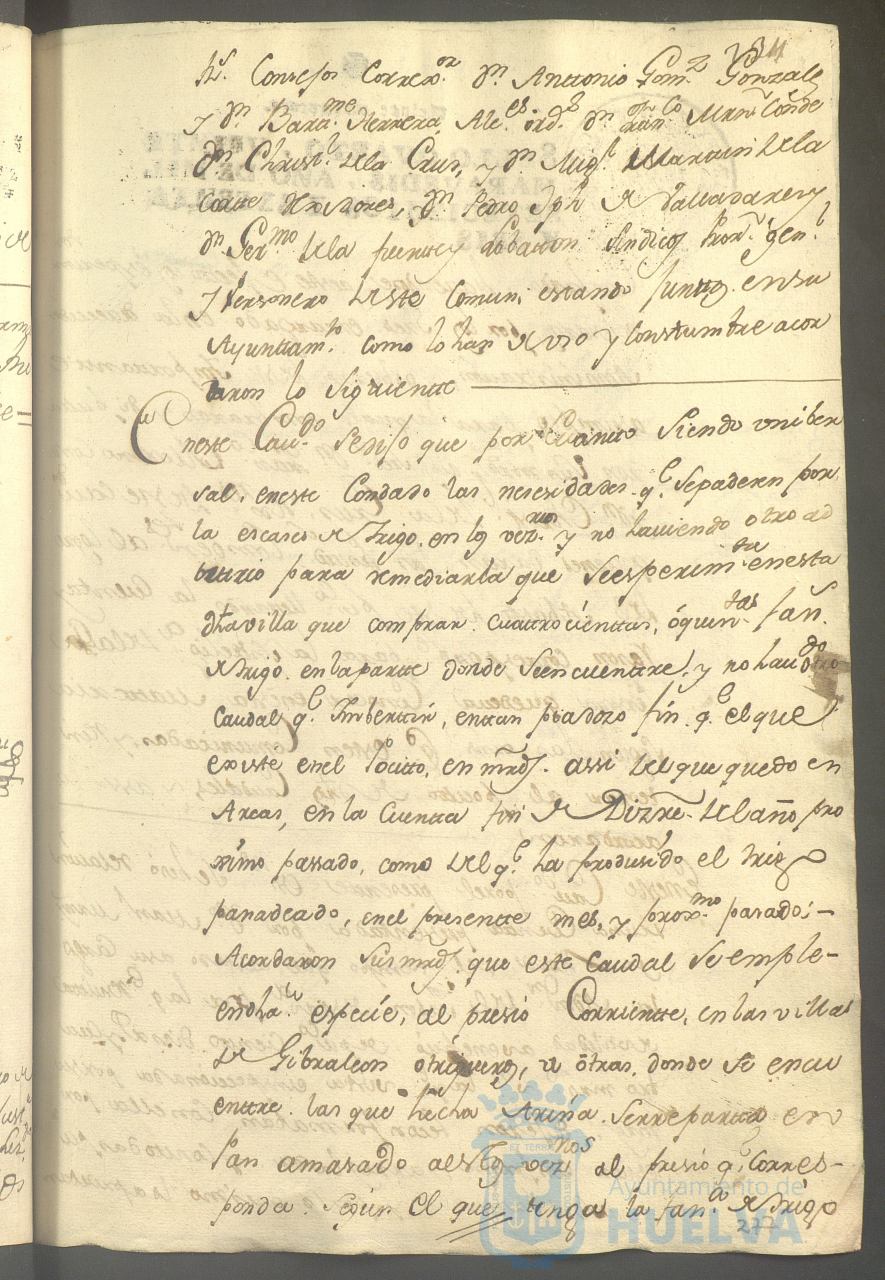 Rs. Consejos Correxor. Dn. Anttonio Gomz. Gonzalez
y Dn. Barme. Herrera, Alces. ords. Dn. Franco Mrn. Conde
Dn. Christl. de la Cruz, y Dn. Migl. Martin de la
Cortte Rexidores, Dn. Pedro Jph de Valladares y
Dn. Germo de la fuentte y Sindicos Pror. genl.
y Personero de este Comun, estando junttos en su
Ayunttamto. como lo han de uso y Constumbre acor
daron lo Siguientte
En este Cavdo. se dijo que por quantto siendo uniber
sal, en este Condado las nesesidades qe. se padesen por
la escases de Trigo en los vezinos y no haviendo otro ad
bittrio para remediarla que se esperimta. en esta
dha villa que comprar cuattrocienttas, ó quintas fan.
de trigo en la partte donde se encuenttre, y no havdo otro
Caudal qe. Imberttir, en tan piadozo fin qe. el que
existe en el Positto, en mrds. assi del que quedo en
Arcas, en la Cuentta fin de Dizre. del año pro
ximo passado, como del qe. ha produsido el trigo
panadeado, en el presentte mes, y proxmo pasado:-
Acordaron Sus mrds. que este Caudal se emple-
en dha. espesie, al presio Corrientte, en las villas
de Gibraleon otrigueros, u otras donde se encu
enttre las que hecha Arina se rreparttan en
Pan amasado a estos veznos al presio qe. Corres-
ponda segun el que tenga la fana de trigo
272
Ayuntamiento de
HUELVA